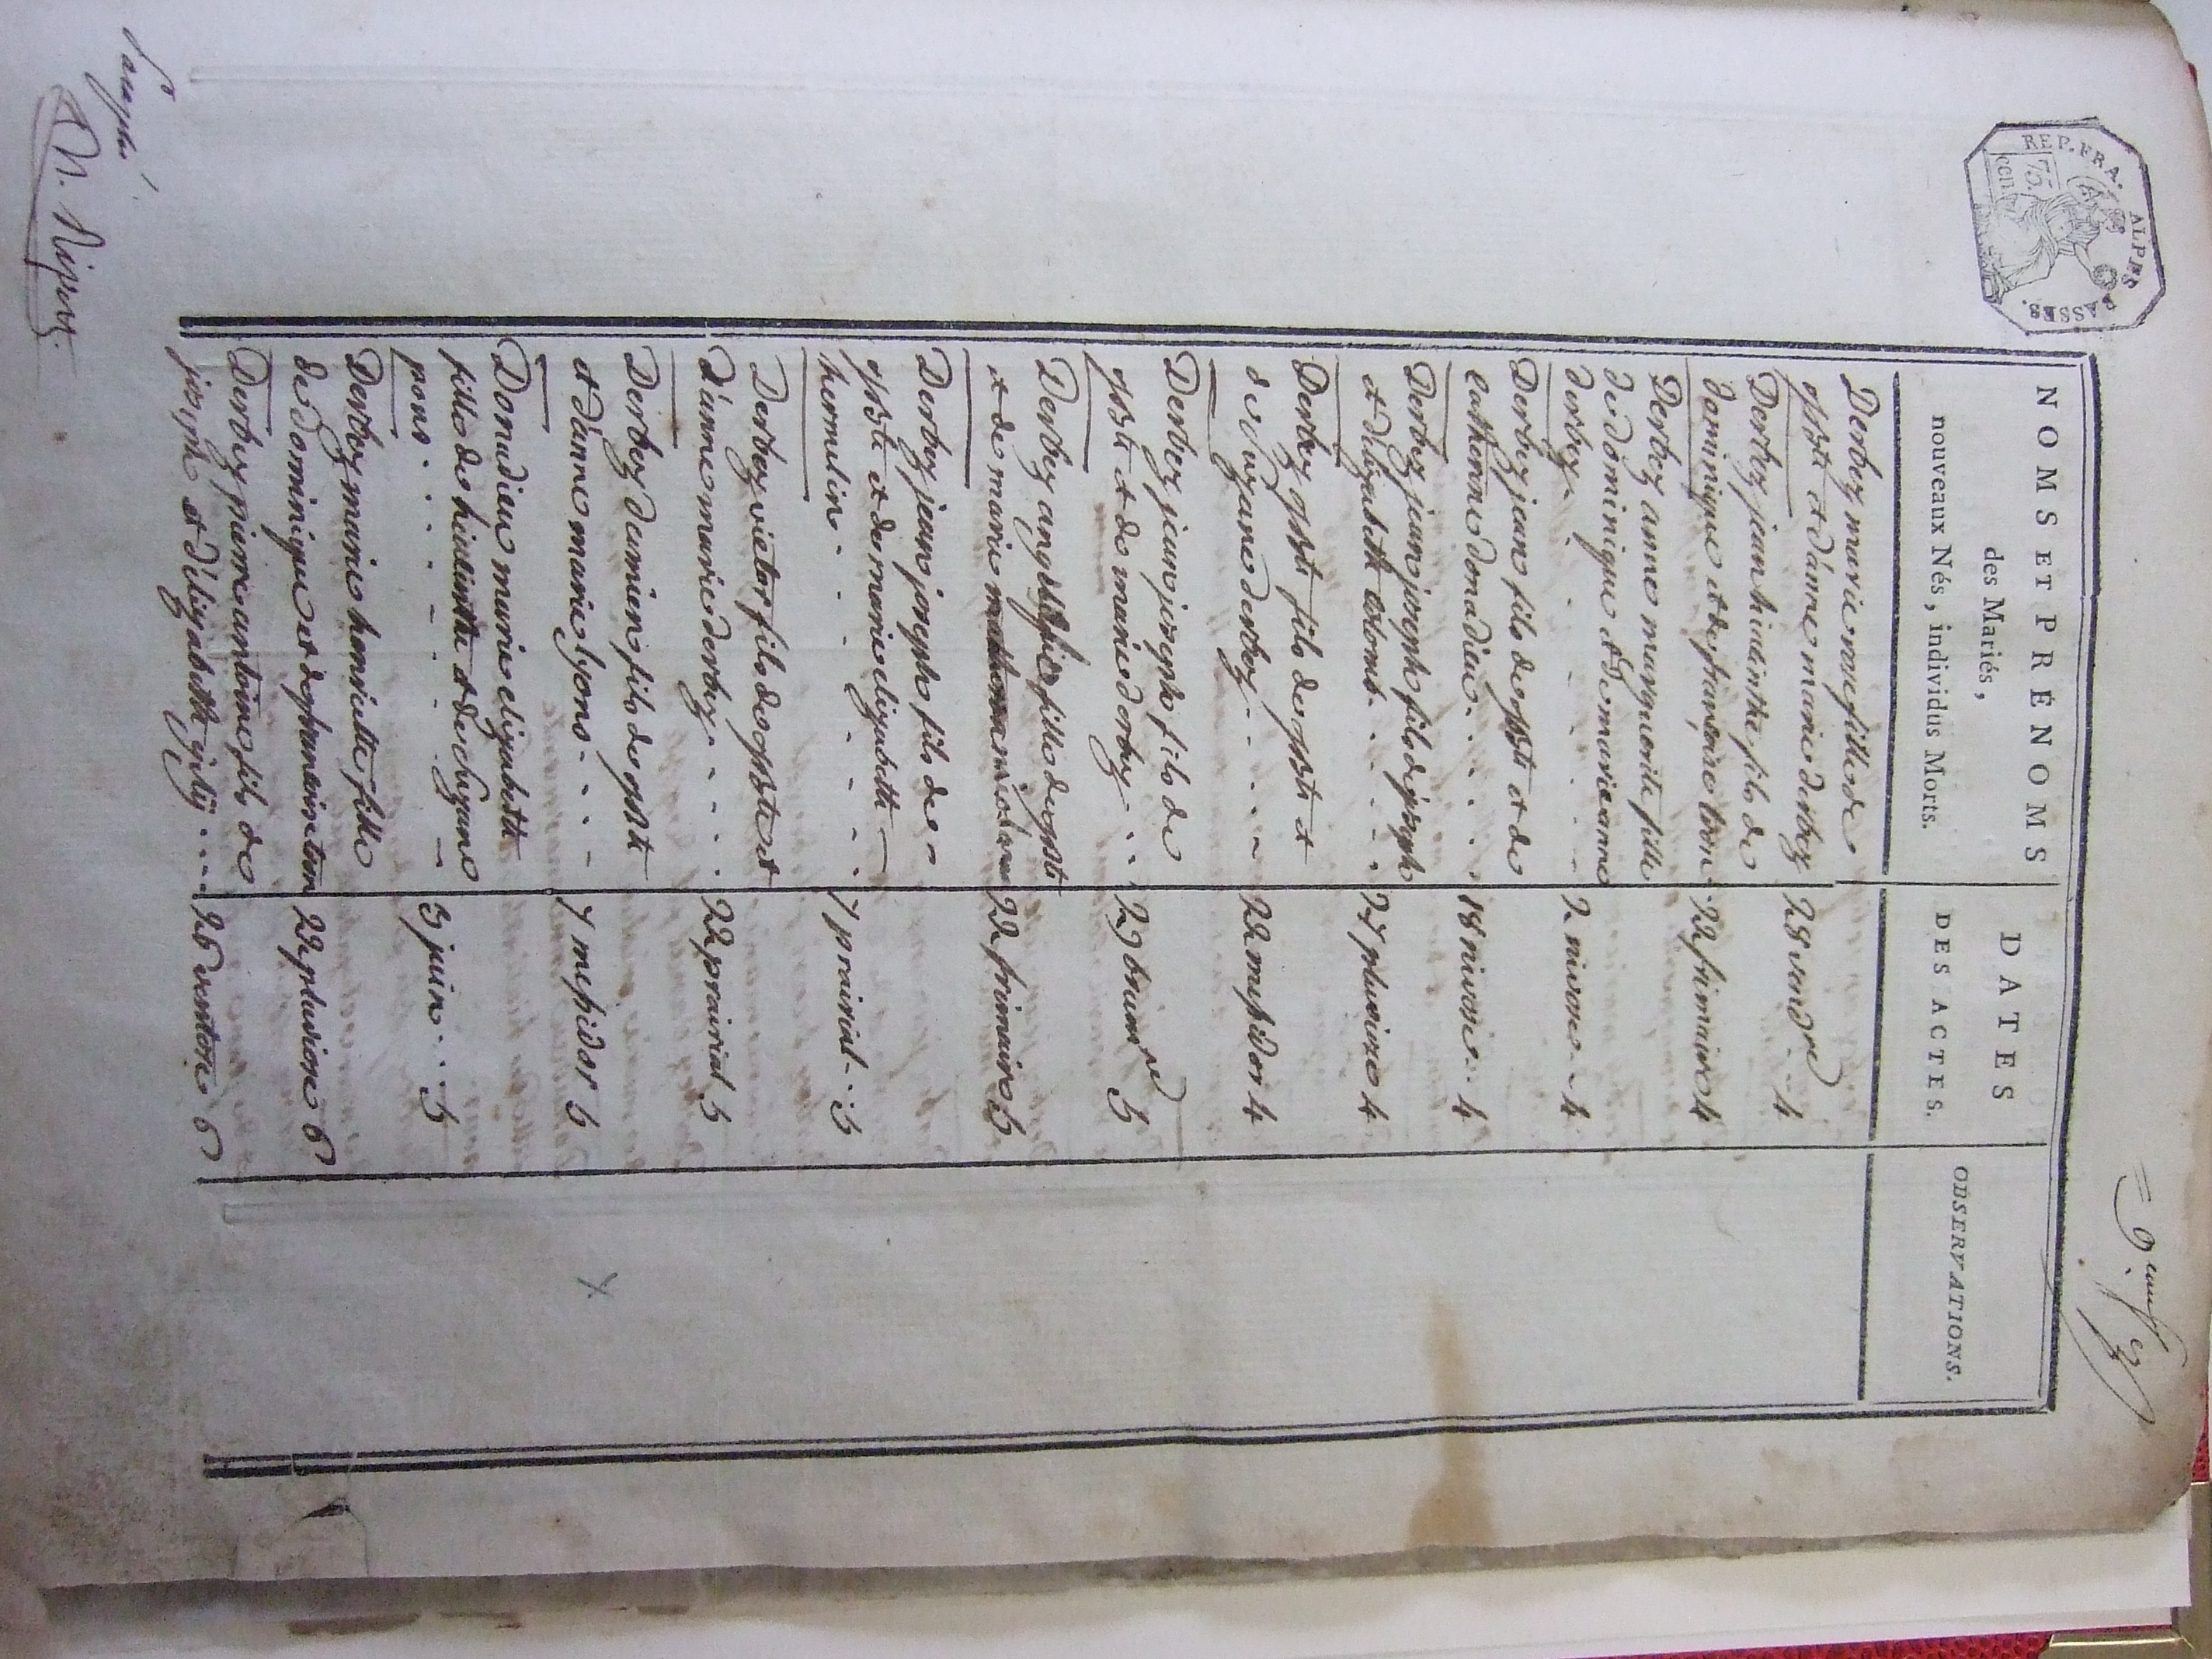 = 9.eme f.et
REP. FRA. ALPES BASSES.
75. cen.
NOMS ET PRÉNOMS
des Mariés,
nouveaux Nés, individus Morts.
DATES
DES ACTES.
OBSERVATIONS.
Derbez marie fille de
et d'anne marie derbez 28 vend.re 4
Derbez jean hiacinthe fils de
dominique et de françoise tron 22 frimaire 4
Derbez anne marguerite fille
de dominique et de marie anne
derbez 2 nivose 4
Derbez jean fils de et de
catherine donadieu 18 nivose 4
Derbez jean joseph fils de joseph
et d'elizabeth colomb 27 pluviose 4
Derbez fils de et
de suzane derbez 22 messidor 4
Derbez jean joseph fils de
et de marie derbez 29 brum.re 5
Derbez fille de
et de marie 22 frimaire 5
Derbez jean joseph fils de
et de marie elizabeth
hermelin 7 prairial 5
Derbez victor fils de et
d'anne marie derbez 22 prairial 5
Derbez damien fils de
et d'anne marie lyons 7 messidor 5
Donadieu marie elizabeth
fille de hiacinthe et de
pons 3 juin 5
Derbez marie henriette fille
de dominique et de françoise tron 22 pluviose 6
Derbez pierre antoine fils de
joseph et d'elizabeth 26 ventose 6
Paraphé